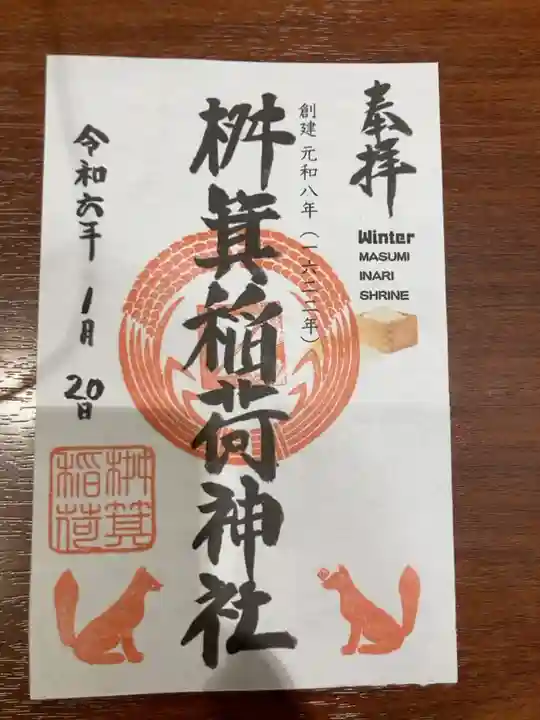 奉拝
Winter
MASUMI
INARI
SHRINE
創建 元和八年（一六二二年）
桝箕稲荷神社
令和六年 1月 20日
桝箕
稲荷